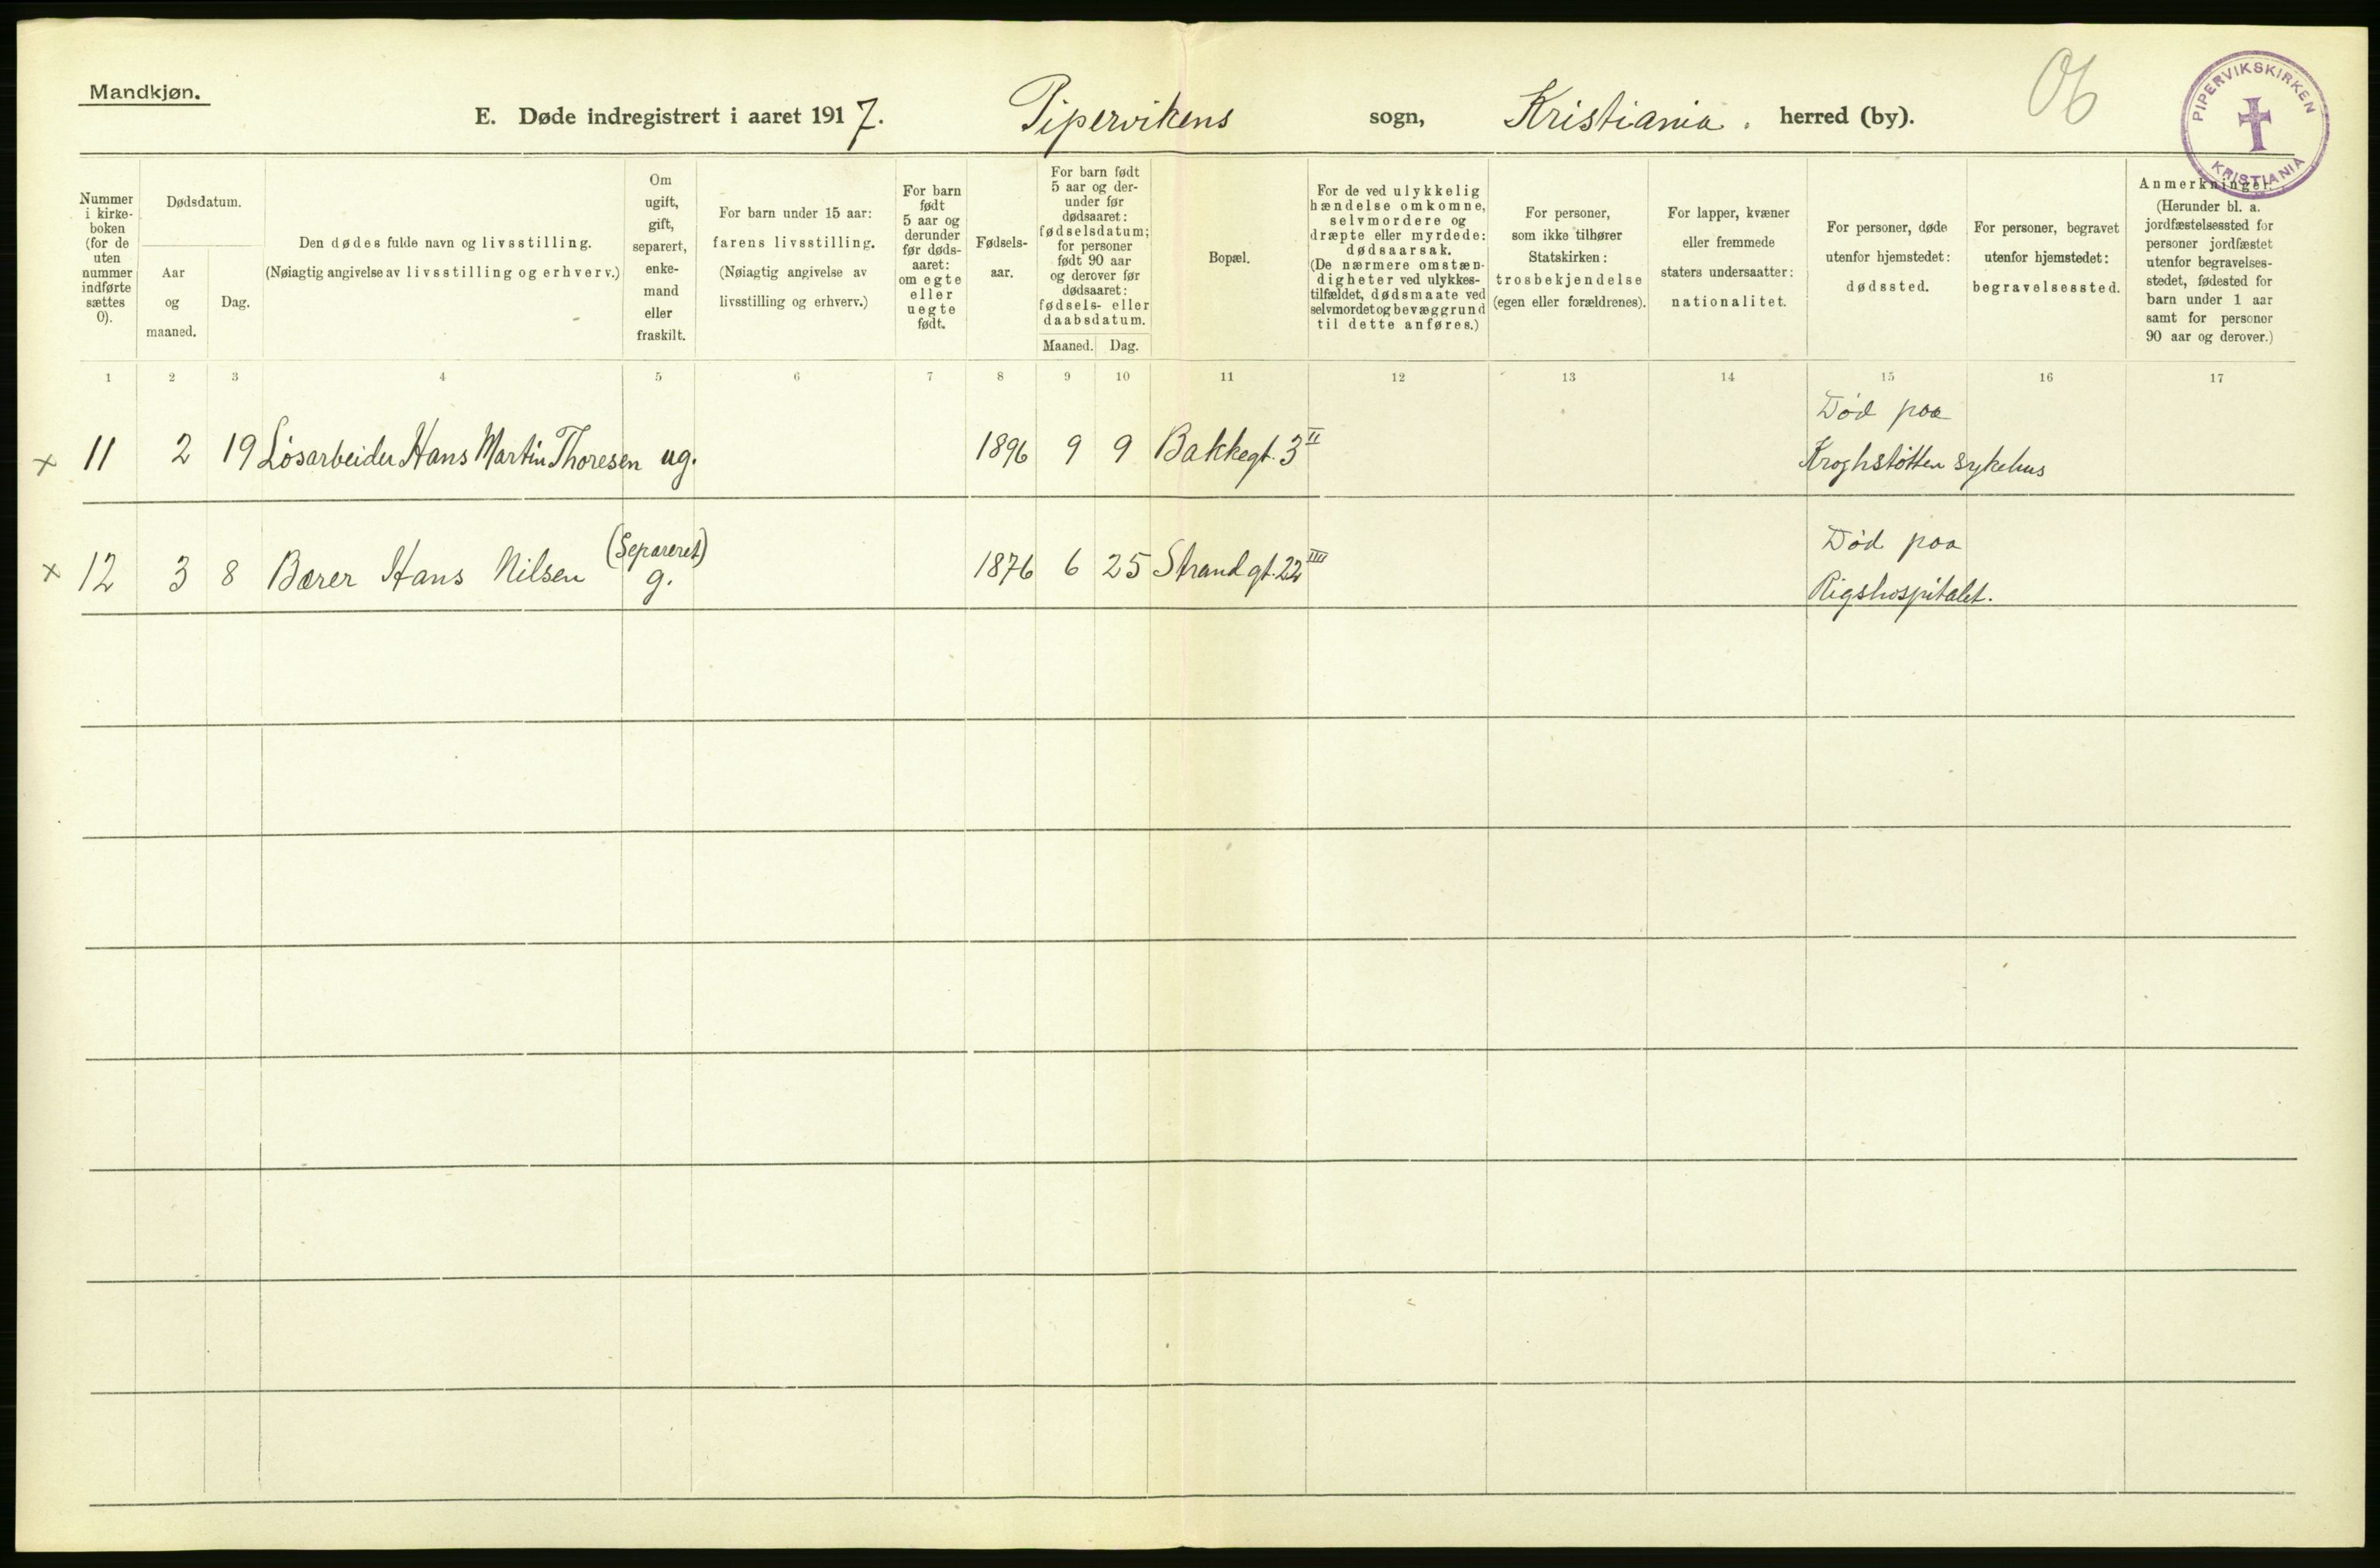 Mandkjøn.
E. Døde indregistrert i aaret 1917. Pipervikens sogn, Kristiania. herred (by).
06
PIPERVIKSKIRKEN
KRISTIANIA
Nummer
i kirke-
boken
(for de
uten
nummer
indførte
sættes
0).
Dødsdatum.
Aar
og
maaned.
Dag.
Den dødes fulde navn og livsstilling.
(Nøiagtig angivelse av livsstilling og erhverv.)
Om
ugift,
gift,
separert,
enke-
mand
eller
fraskilt.
For barn under 15 aar:
farens livsstilling.
(Nøiagtig angivelse av
livsstilling og erhverv.)
For barn
født
5 aar og
derunder
før døds-
aaret:
om egte
eller
uegte
født.
Fødsels-
aar.
For barn født
5 aar og der-
under før
dødsaaret:
fødselsdatum;
for personer
født 90 aar
og derover før
dødsaaret:
fødsels- eller
daabsdatum.
Maaned. Dag.
Bopæl.
For de ved ulykkelig
hændelse omkomne,
selvmordere og
dræpte eller myrdede:
dødsaarsak.
(De nærmere omstæn-
digheter ved ulykkes-
tilfældet, dødsmaate ved
selvmordet og bevæggrund
til dette anføres.)
For personer,
som ikke tilhører
Statskirken:
trosbekjendelse
(egen eller forældrenes).
For lapper, kvæner
eller fremmede
staters undersaatter:
nationalitet.
For personer, døde
utenfor hjemstedet:
dødssted.
For personer, begravet
utenfor hjemstedet:
begravelsessted.
Anmerkninger.
(Herunder bl. a.
jordfæstelsessted for
personer jordfæstet
utenfor begravelses-
stedet, fødested for
barn under 1 aar
samt for personer
90 aar og derover.)
1 2 3 4 5 6 7 8 9 10 11 12 13 14 15 16 17
Død paa
x 11 2 19 Løsarbeider Hans Martin Thoresen ug. 1896 9 9 Bakkegt. 3 II Kroghstøtten sykehus
(Separeret) Død paa
x 12 3 8 Bærer Hans Nilsen g. 1876 6 25 Strandgt. 22 IIII Rigshospitalet.